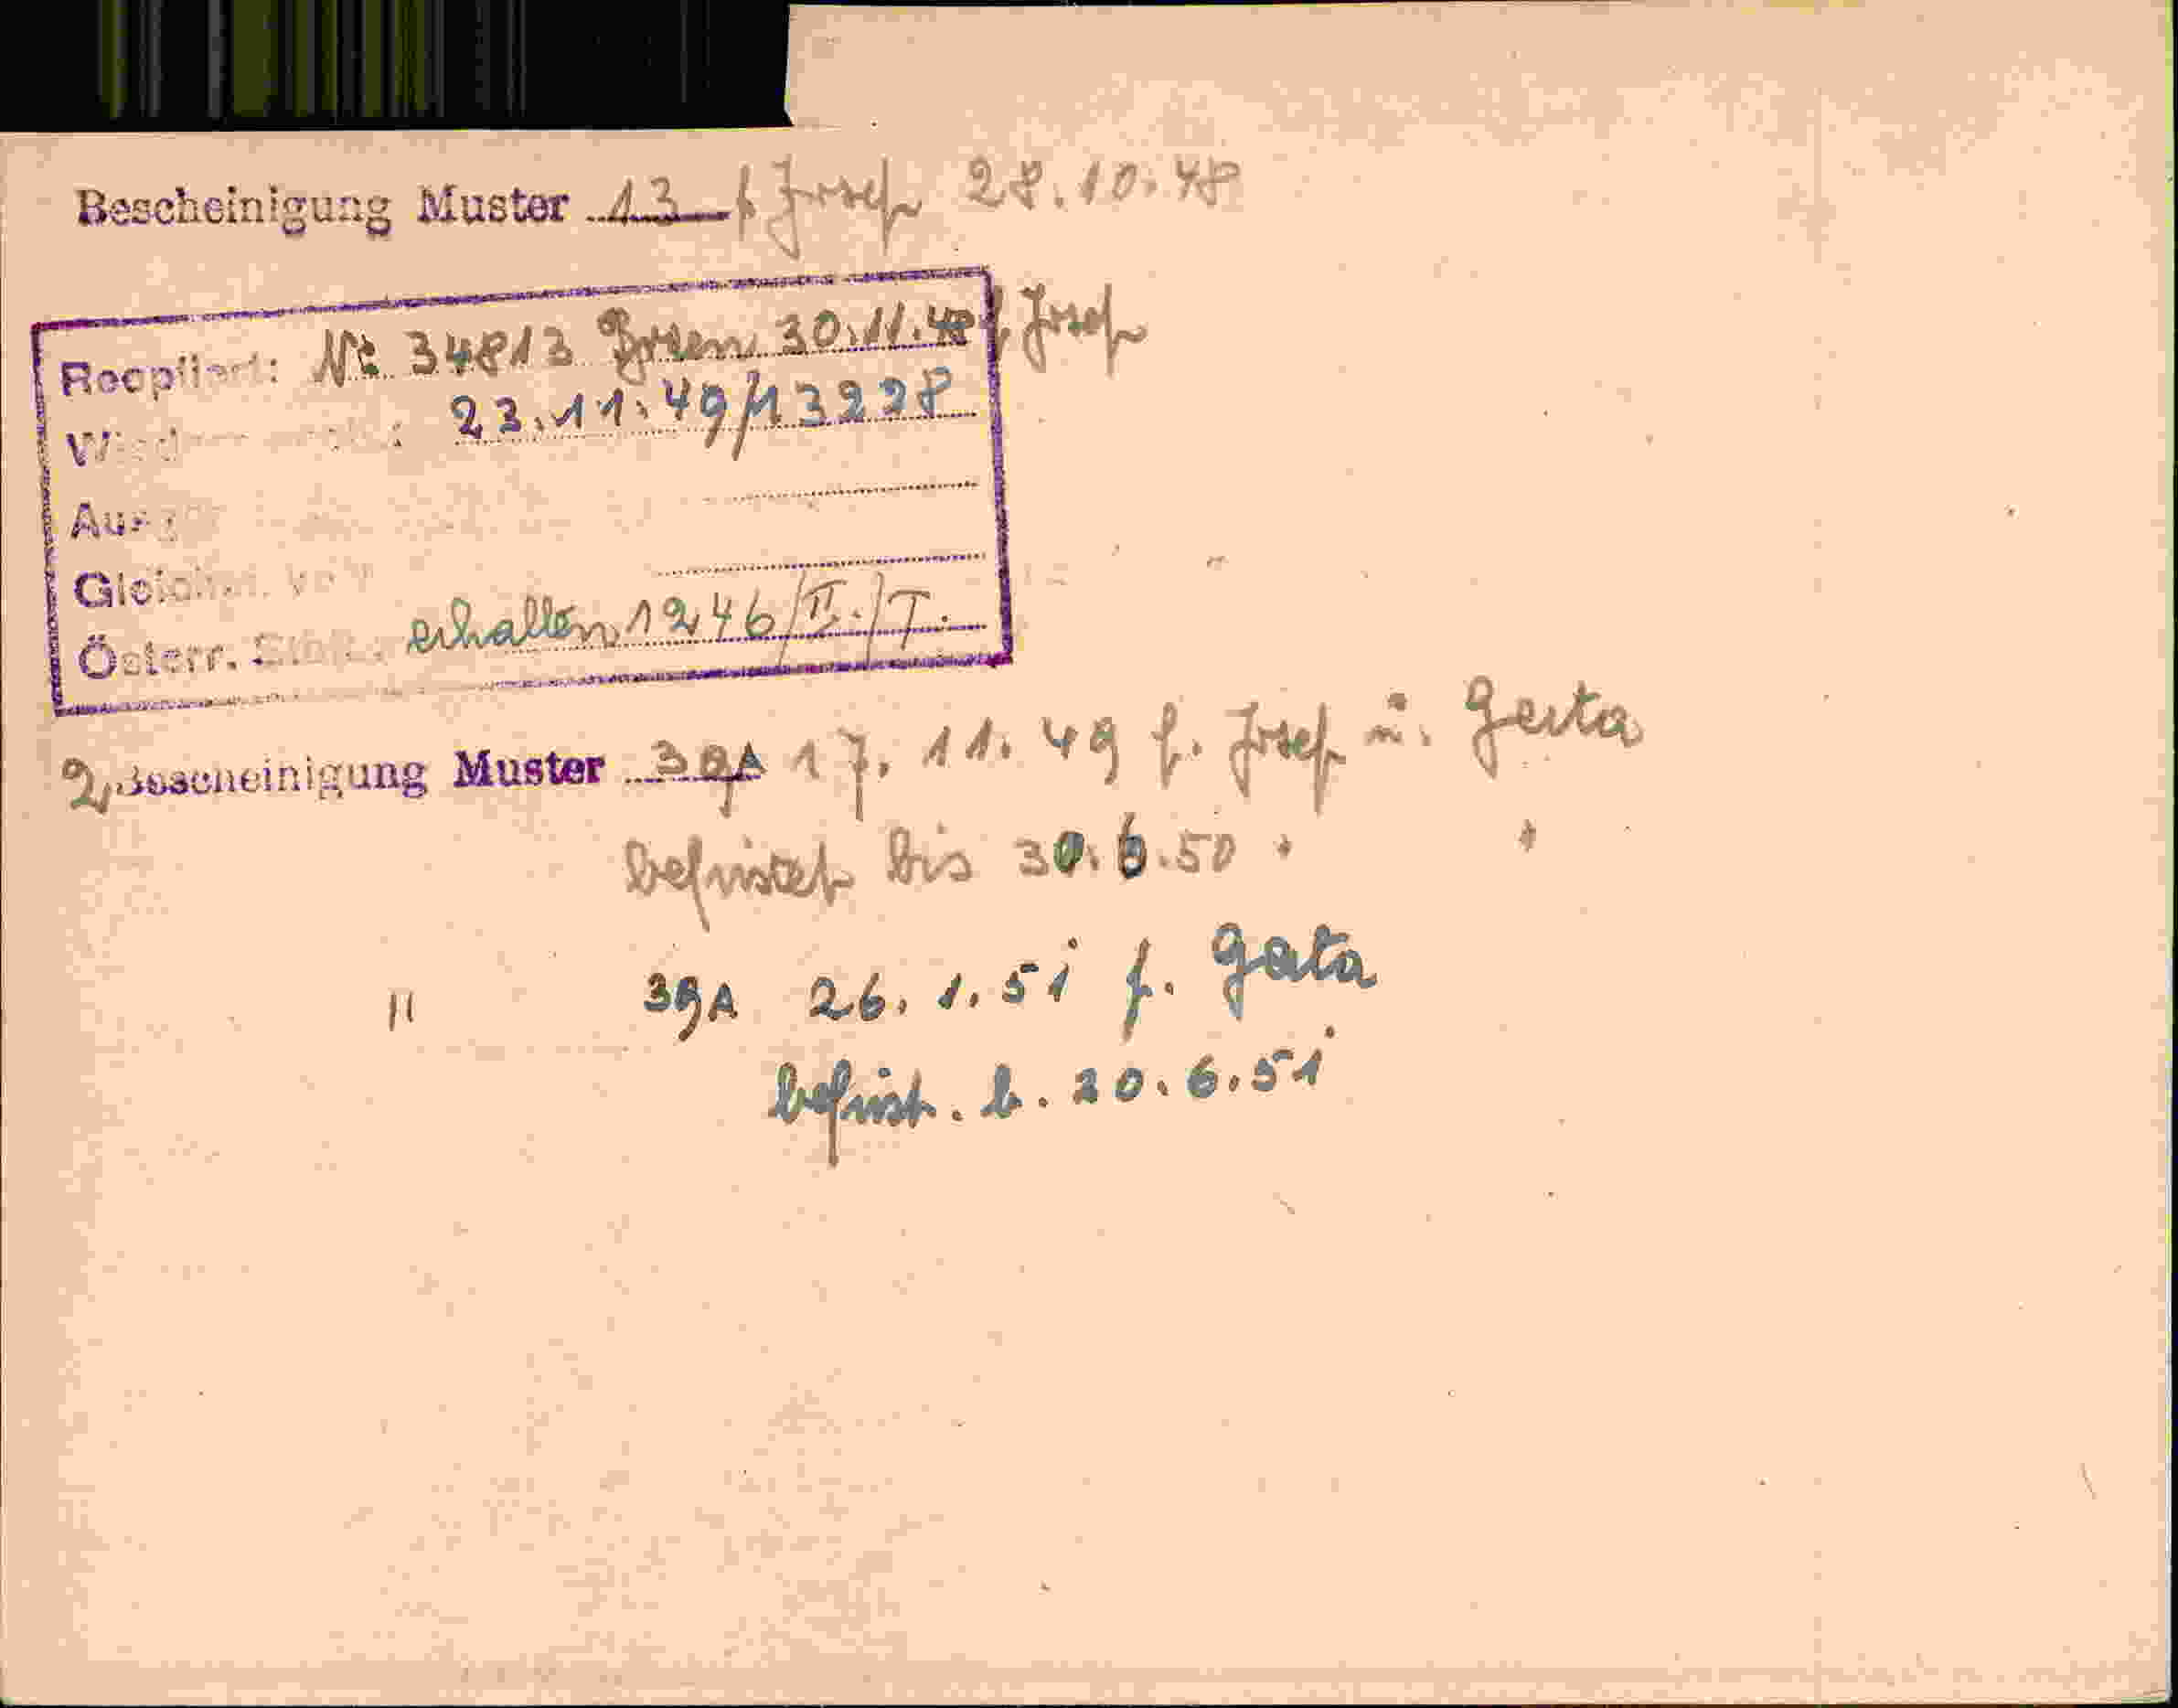 Bescheinigung Muster 13 f Josef 28.10.48
Reoptiert: Nr. 34813 Bozen 30.11.48 f. Josef
23.11.49/13228
Österr. erhalten 1246/II./T.
2, Bescheinigung Muster 39A 17.11.49 f. Josef u. Gerta
befristet bis 30.6.50
" 39A 26.1.51 f. Gerta
befrist. b. 30.6.51